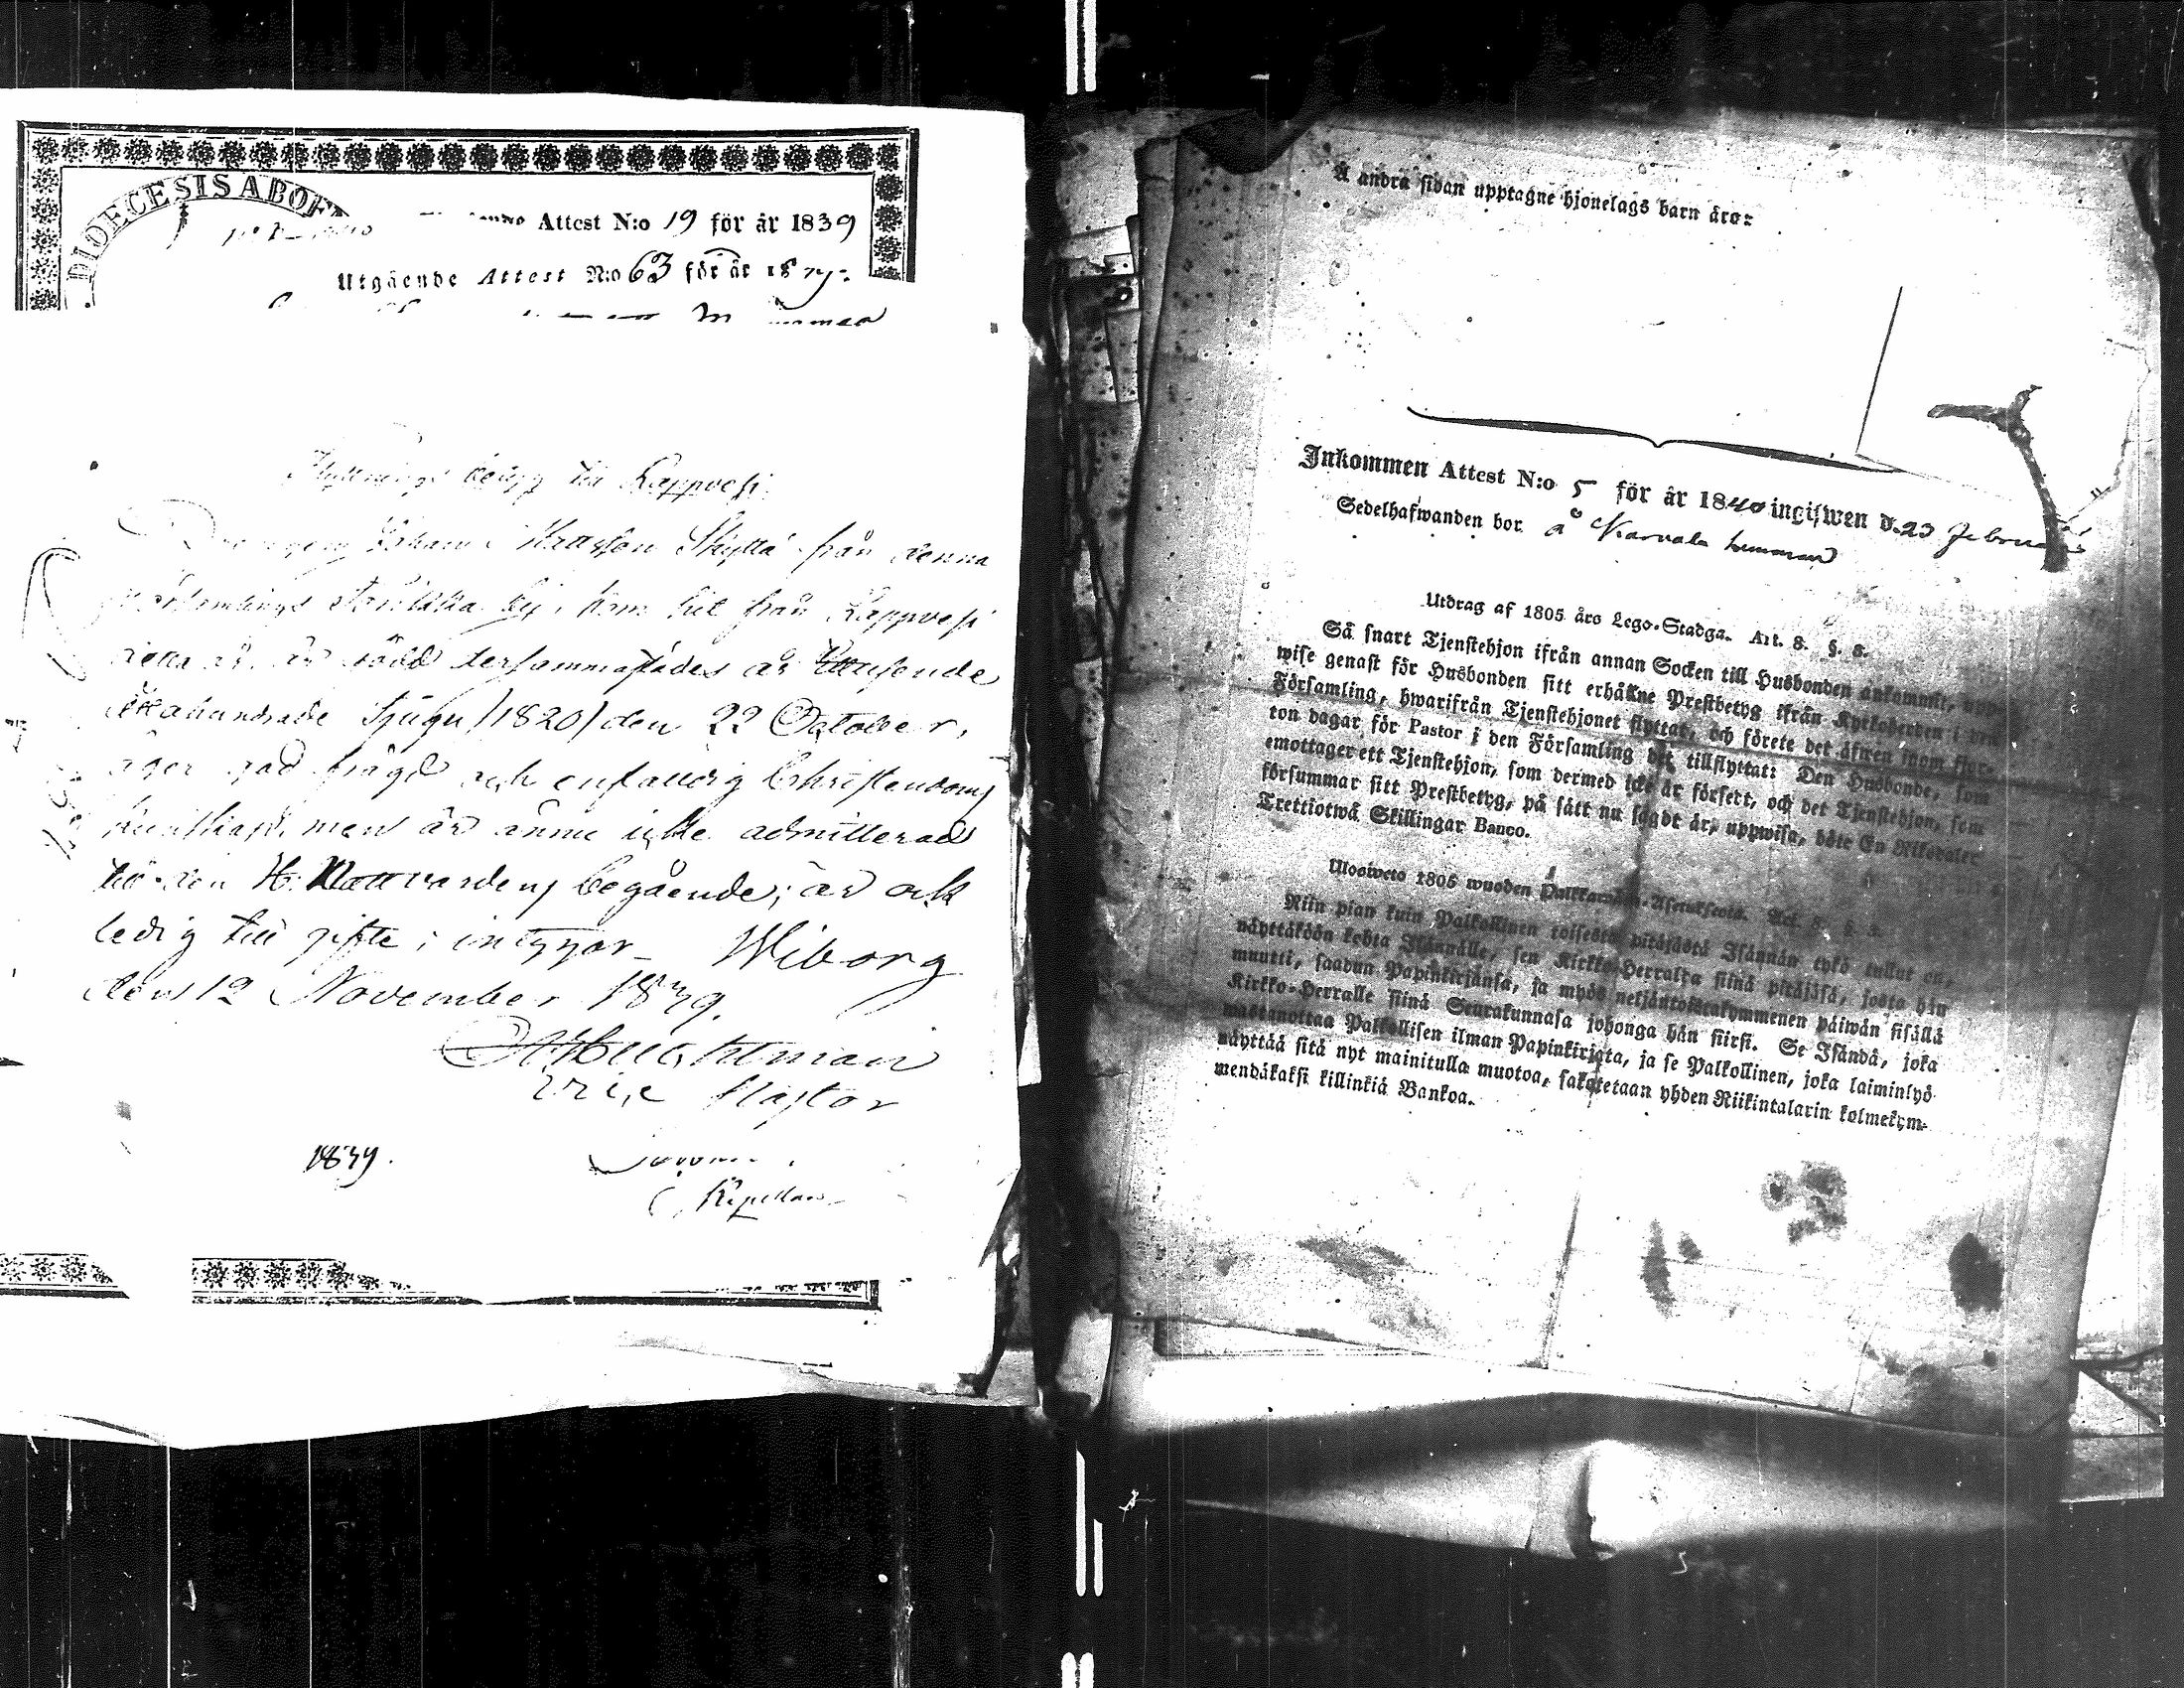 DIOECESIS ABOE
Attest N:o 19 för år 1839
Utgående Attest N:o 63 för år 18
Flyttnings betyg till Lappvesi
Johan Mattsson Skyttä från denna
by, kom hit från Lappvesi
detta år, är född dersammastädes år Ettusende
åttahundrade tjugu /1820/ den 22 October,
äger god frägd och enfaldig Christendoms
kunskap, men är ännu icke admitterad
till den H. Nattvardens begående; är ock
ledig till gifte; intygar Wiborg
den 12 November 1839.
Vice Pastor
1839.
Kapellan
Å andra sidan upptagne hjonelags barn äro:
Inkommen Attest N:o 5 för år 1840 ingifwen d. 23 Februarii
Sedelhafwanden bor å Karvala hemman
Utdrag af 1805 års Lego-Stadga. Art. 8. §. 6.
Så snart Tjenstehjon ifrån annan Socken till Husbonden ankommit, upp-
wise genast för Husbonden sitt erhållne Prestbetyg ifrån Kyrkoherden i den
Församling, hwarifrån Tjenstehjonet flyttat, och förete det äfwen inom fjor-
ton dagar för Pastor i den Församling det tillflyttat: Den Husbonde, som
emottager ett Tjenstehjon, som dermed icke är försedt, och det Tjenstehjon, som
försummar sitt Prestbetyg, på sätt nu sagdt är, uppwisa, böte En Riksdaler
Trettiotwå Skillingar Banco.
Ulosweto 1805 wuoden Palkkawäen-Asetuksesta. Art. 8. §.
Niin pian kuin Palkollinen toisesta pitäjästä Isännän tykö tullut on,
näyttäköön kohta Isännälle, sen Kirkko-Herralta siinä pitäjäsä, josta hän
muutti, saadun Papinkirjansa, ja myös neljäntoistakymmenen päiwän sisällä
Kirkko-Herralle siinä Seurakunnasa johonga hän siirsi. Se Isändä, joka
wastanottaa Palkollisen ilman Papinkirjata, ja se Palkollinen, joka laiminlyö
näyttää sitä nyt mainitulla muotoa, sakotetaan yhden Riikintalarin kolmekym-
mendäkaksi killinkiä Bankoa.